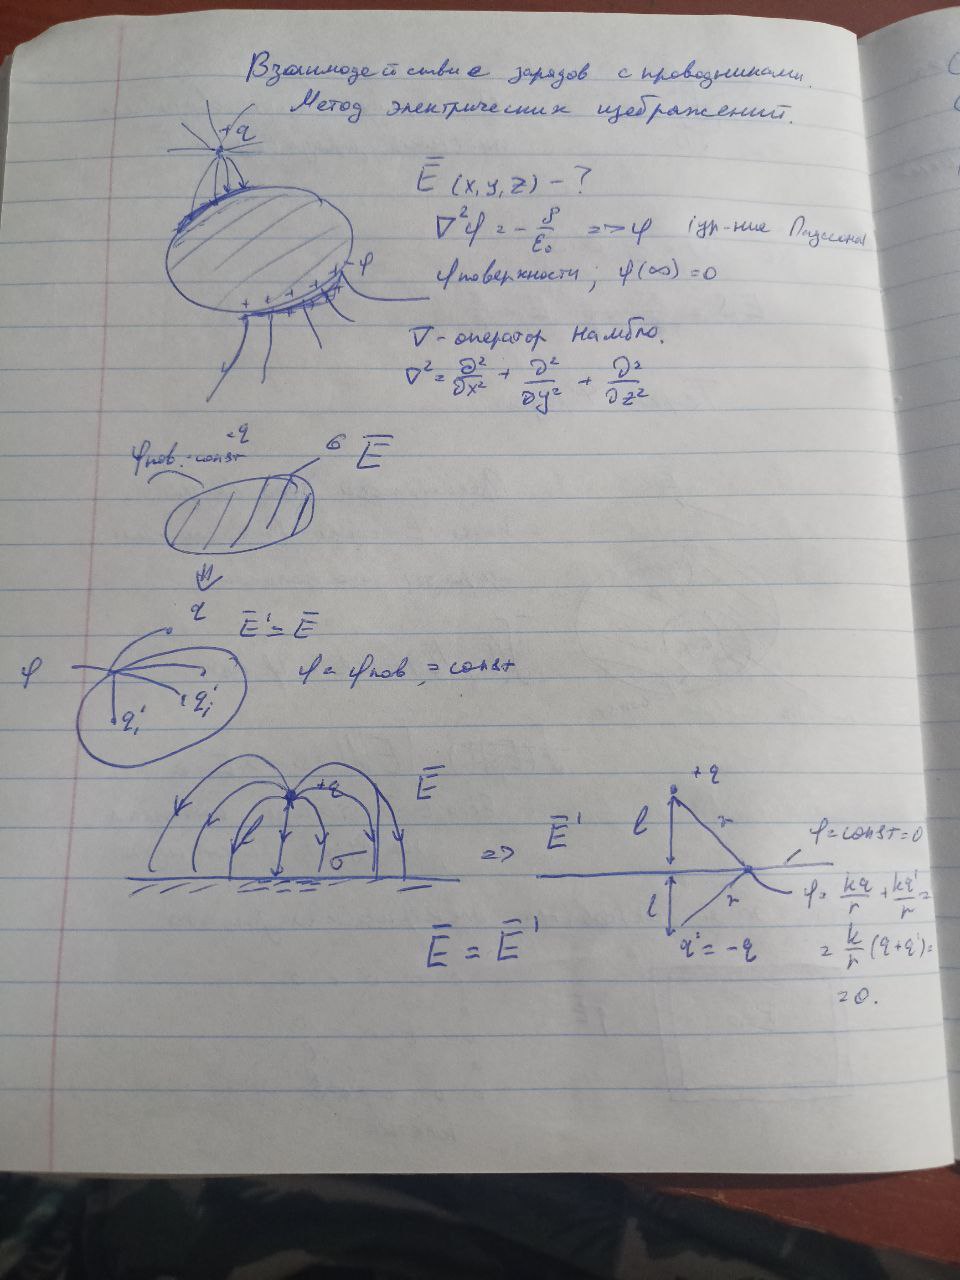 Взаимодействие зарядов с проводниками.
Метод электрических изображений.
+q
Ē (x, y, z) - ?
∇²φ = - ρ/ε₀ => φ (ур-ние Пуассона
φ поверхности ; φ(∞) = 0
- φ
+ + + + + +
∇ - оператор Намбло.
∇² = ∂²/∂x² + ∂²/∂y² + ∂²/∂z²
φпов. = const
·q
σ Ē
q
Ē' = Ē
φ
φ = φпов = const
q'i
q'i
+q
Ē
σ
=>
Ē'
+q
l
r
φ = const = 0
l
r
φ = kq/r + kq'/r =
q' = -q
= k/r (q+q') =
= 0.
Ē = Ē'